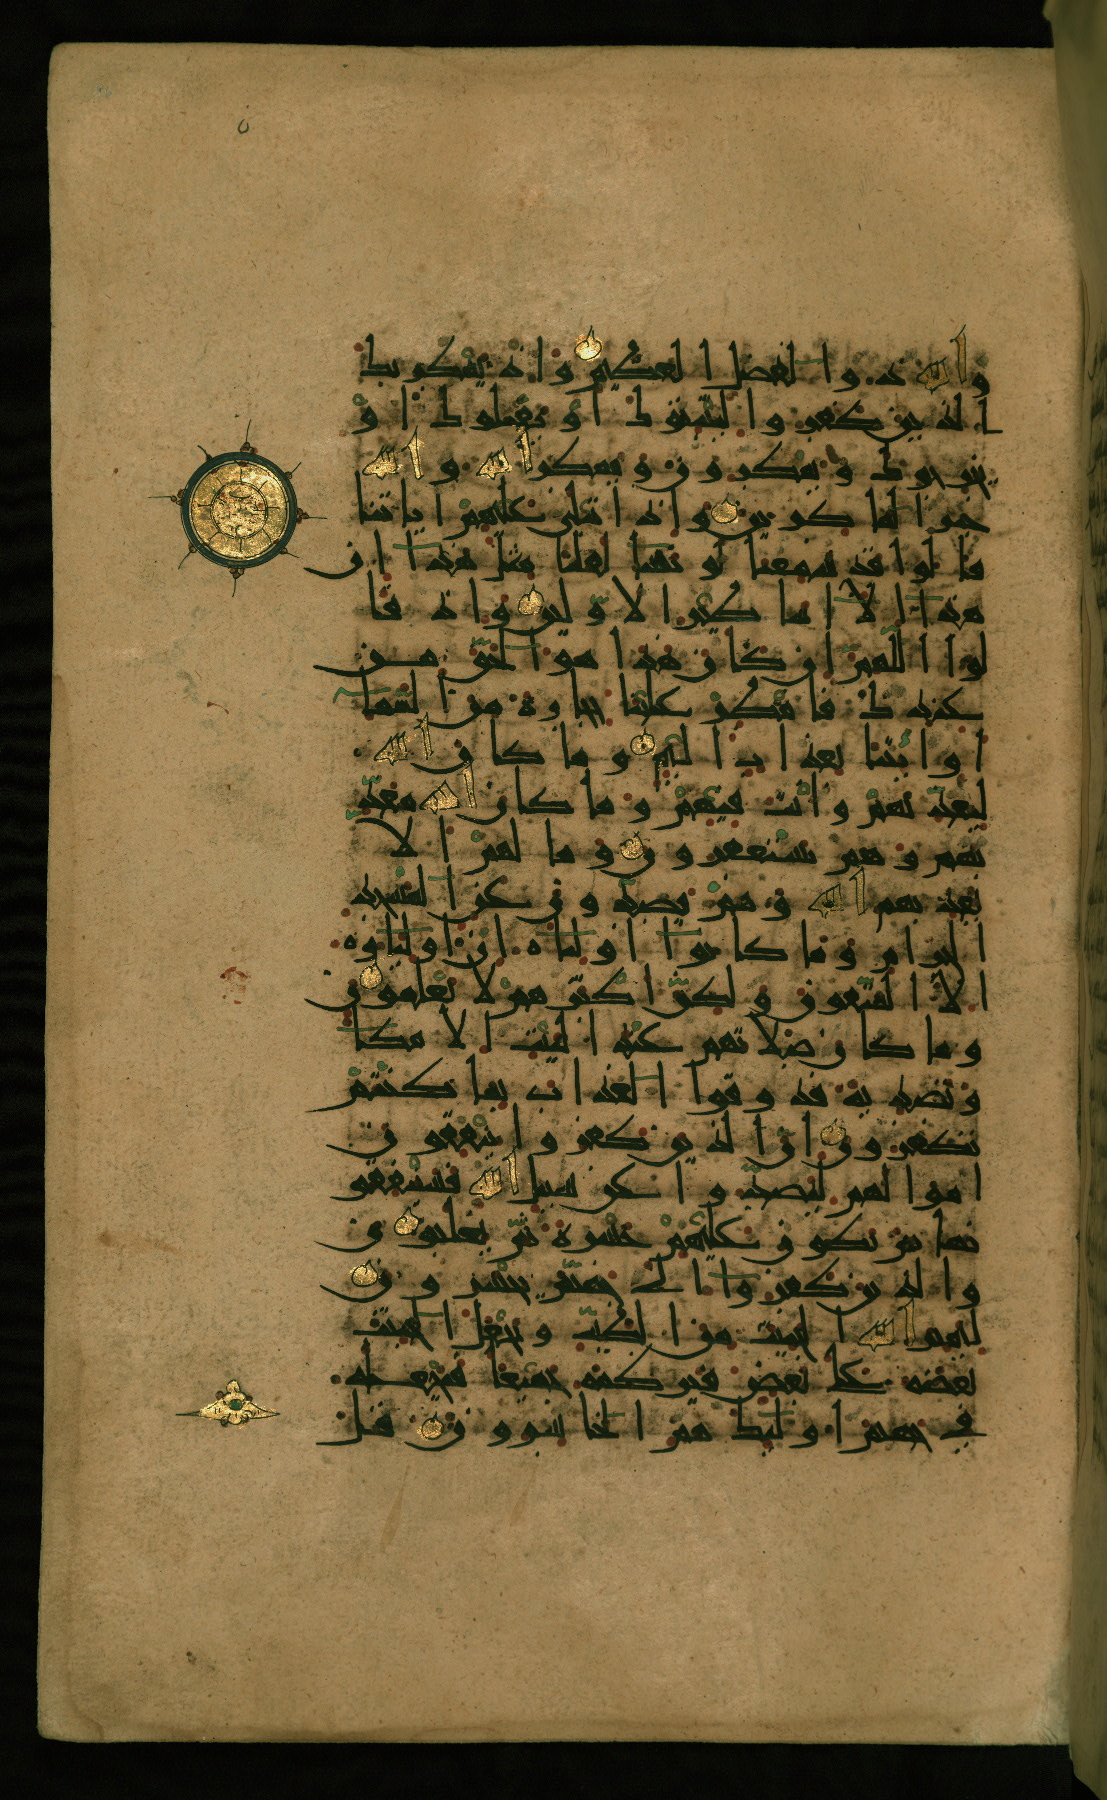 والله ذو الفضل العظيم واذ يمكر بك
الذين كفروا ليثبتوك او يقتلوك او
يخرجوك ويمكرون ويمكر الله والله
خير الماكرين واذا تتلى عليهم اياتنا
قالوا قد سمعنا لو نشا لقلنا مثل هذا ان
هذا الا اساطير الاولين واذ قا
لوا اللهم ان كان هذا هو الحق من
عندك فامطر علينا حجارة من السما
او ائتنا بعذاب اليم وما كان الله
ليعذبهم وانت فيهم وما كان الله معذ
بهم وهم يستغفرون وما لهم الا
يعذبهم الله وهم يصدون عن المسجد
الحرام وما كانوا اولياه ان اولياوه
الا المتقون ولكن اكثرهم لا يعلمون
وما كان صلاتهم عند البيت الا مكا
وتصدية فذوقوا العذاب بما كنتم
تكفرون ان الذين كفروا ينفقون
اموالهم ليصدوا عن سبيل الله فسينفقو
نها ثم تكون عليهم حسرة ثم يغلبون
والذين كفروا الى جهنم يحشرون
ليميز الله الخبيث من الطيب ويجعل الخبيث
بعضه على بعض فيركمه جميعا فيجعله
في جهنم اولئك هم الخاسرون قل